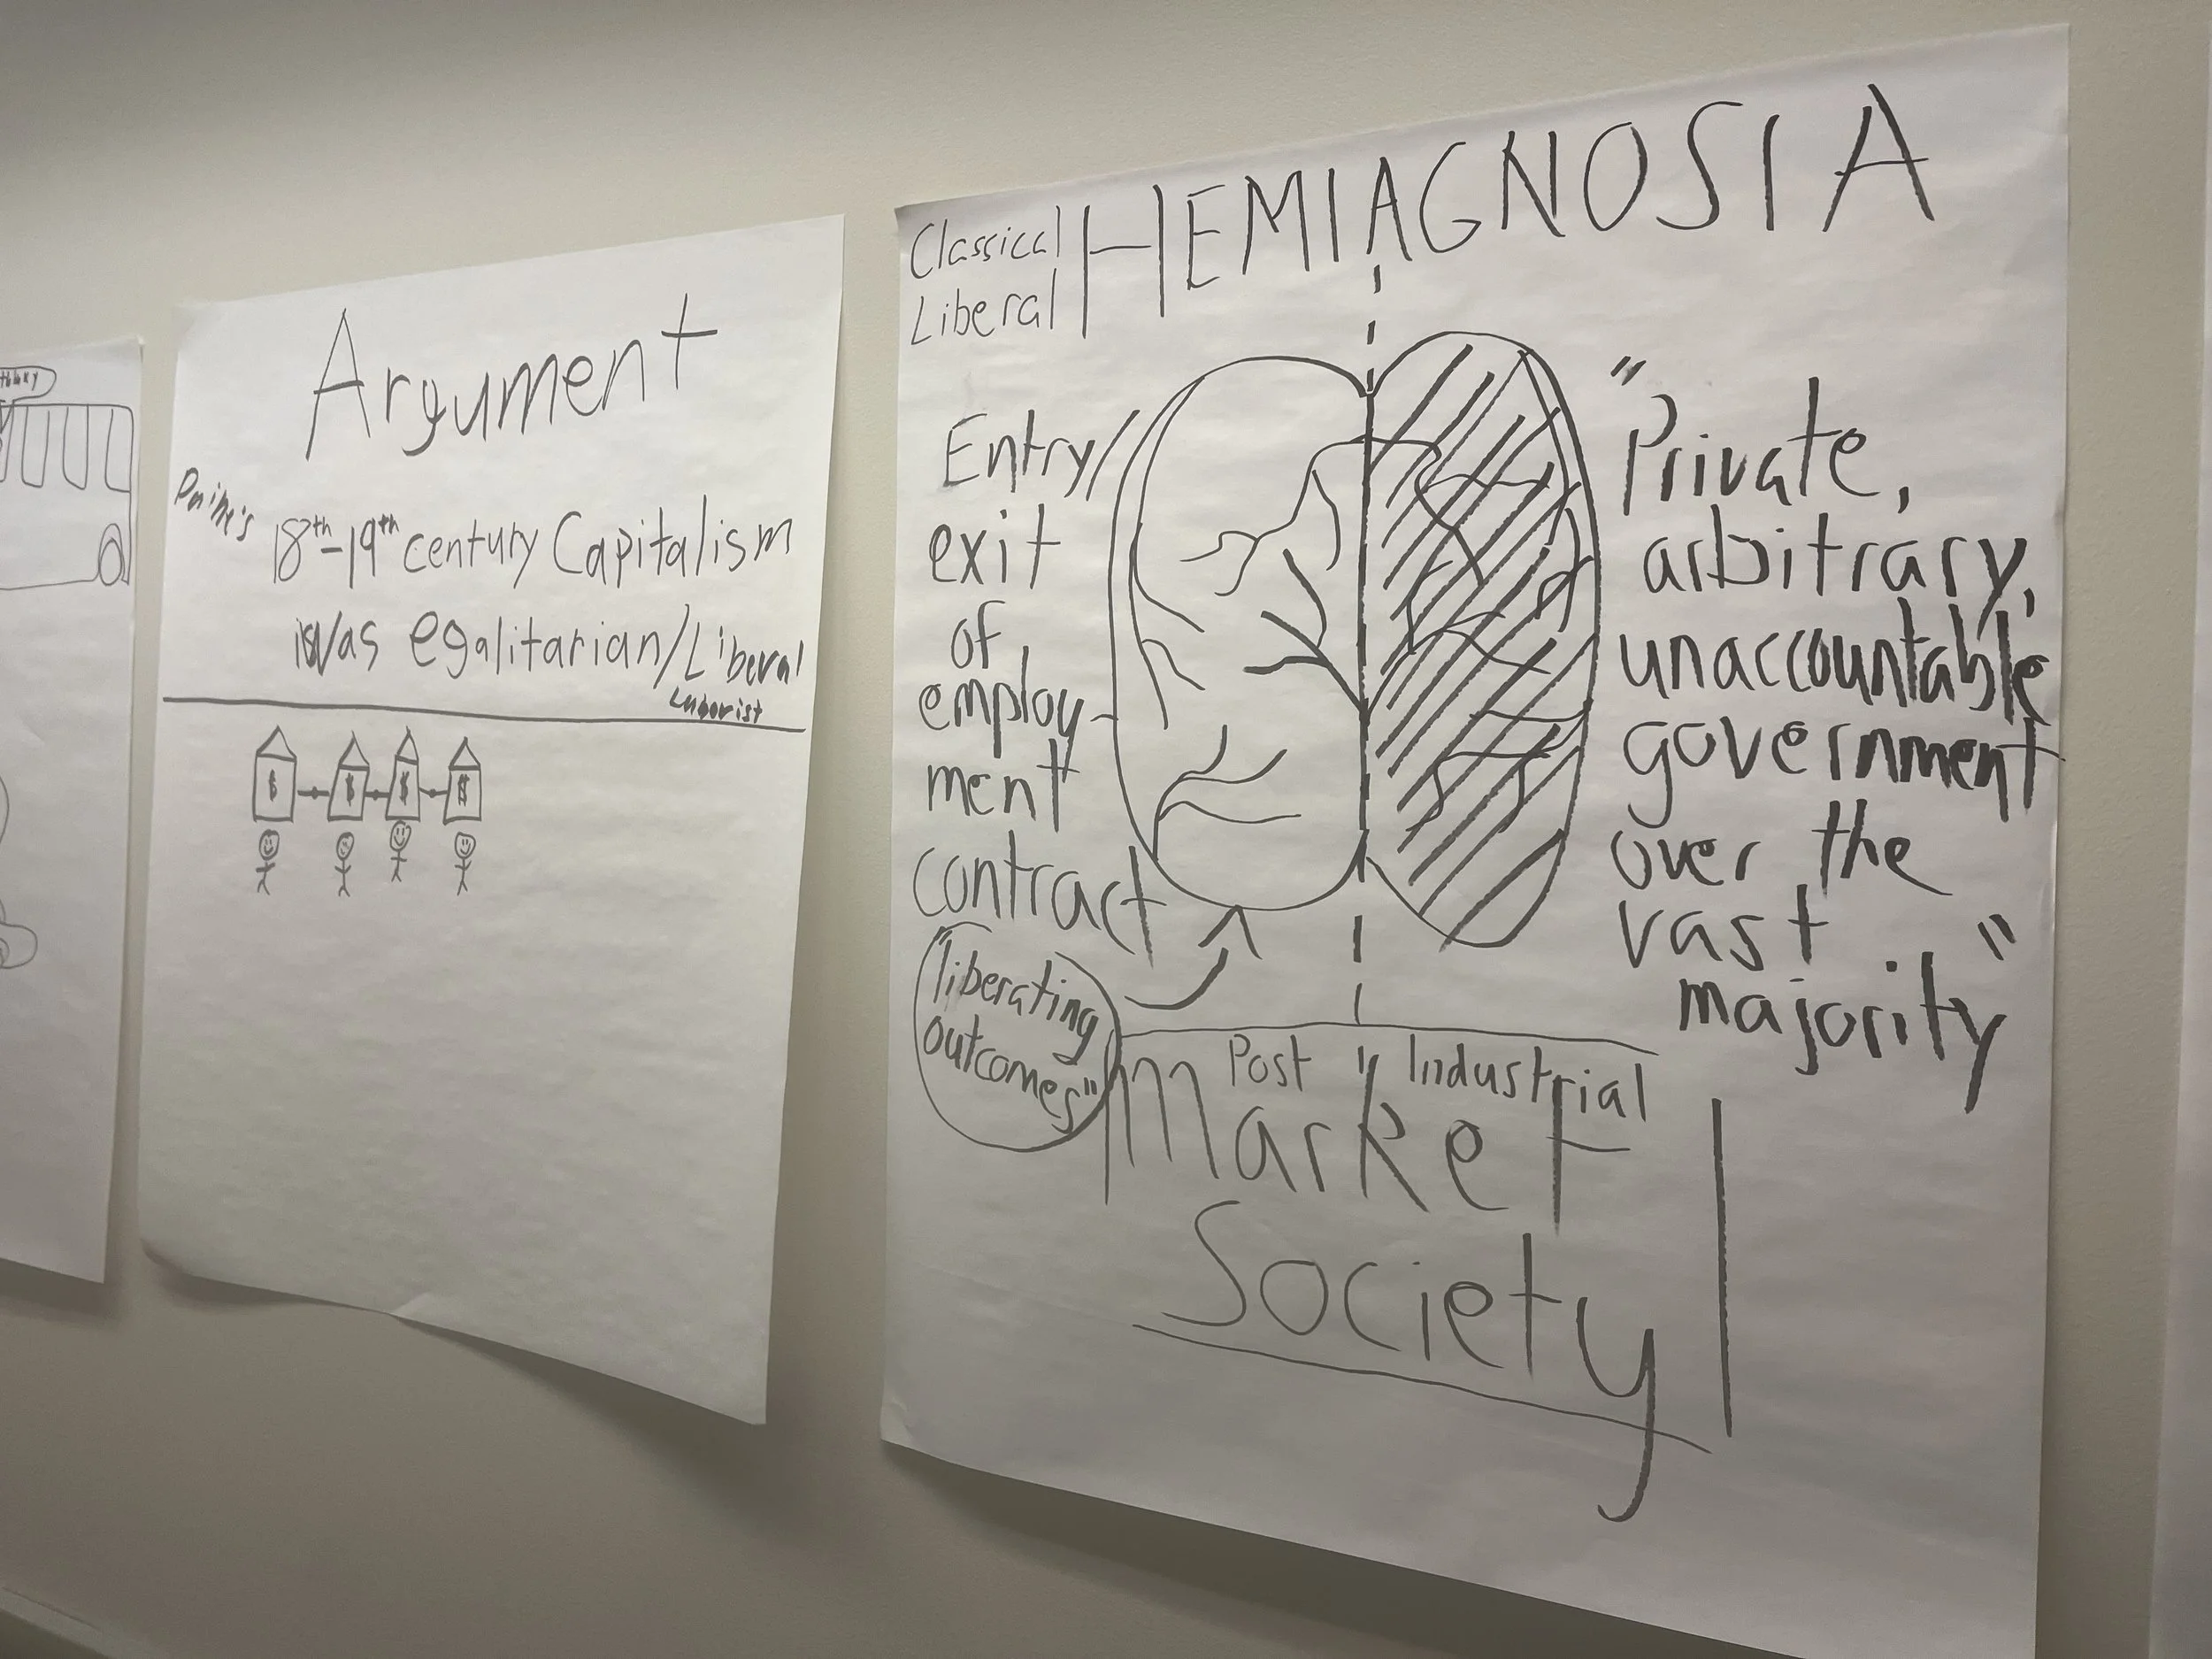 Argument
Paine's
18th-19th century Capitalism
was egalitarian/Liberal
$ $ $ $
Classical
Liberal
HEMIAGNOSIA
Entry/
exit
of
employ-
ment
contract
"liberating
outcomes"
"Private,
arbitrary,
unaccountable
government
over the
vast
majority"
Post Industrial
Market
Society